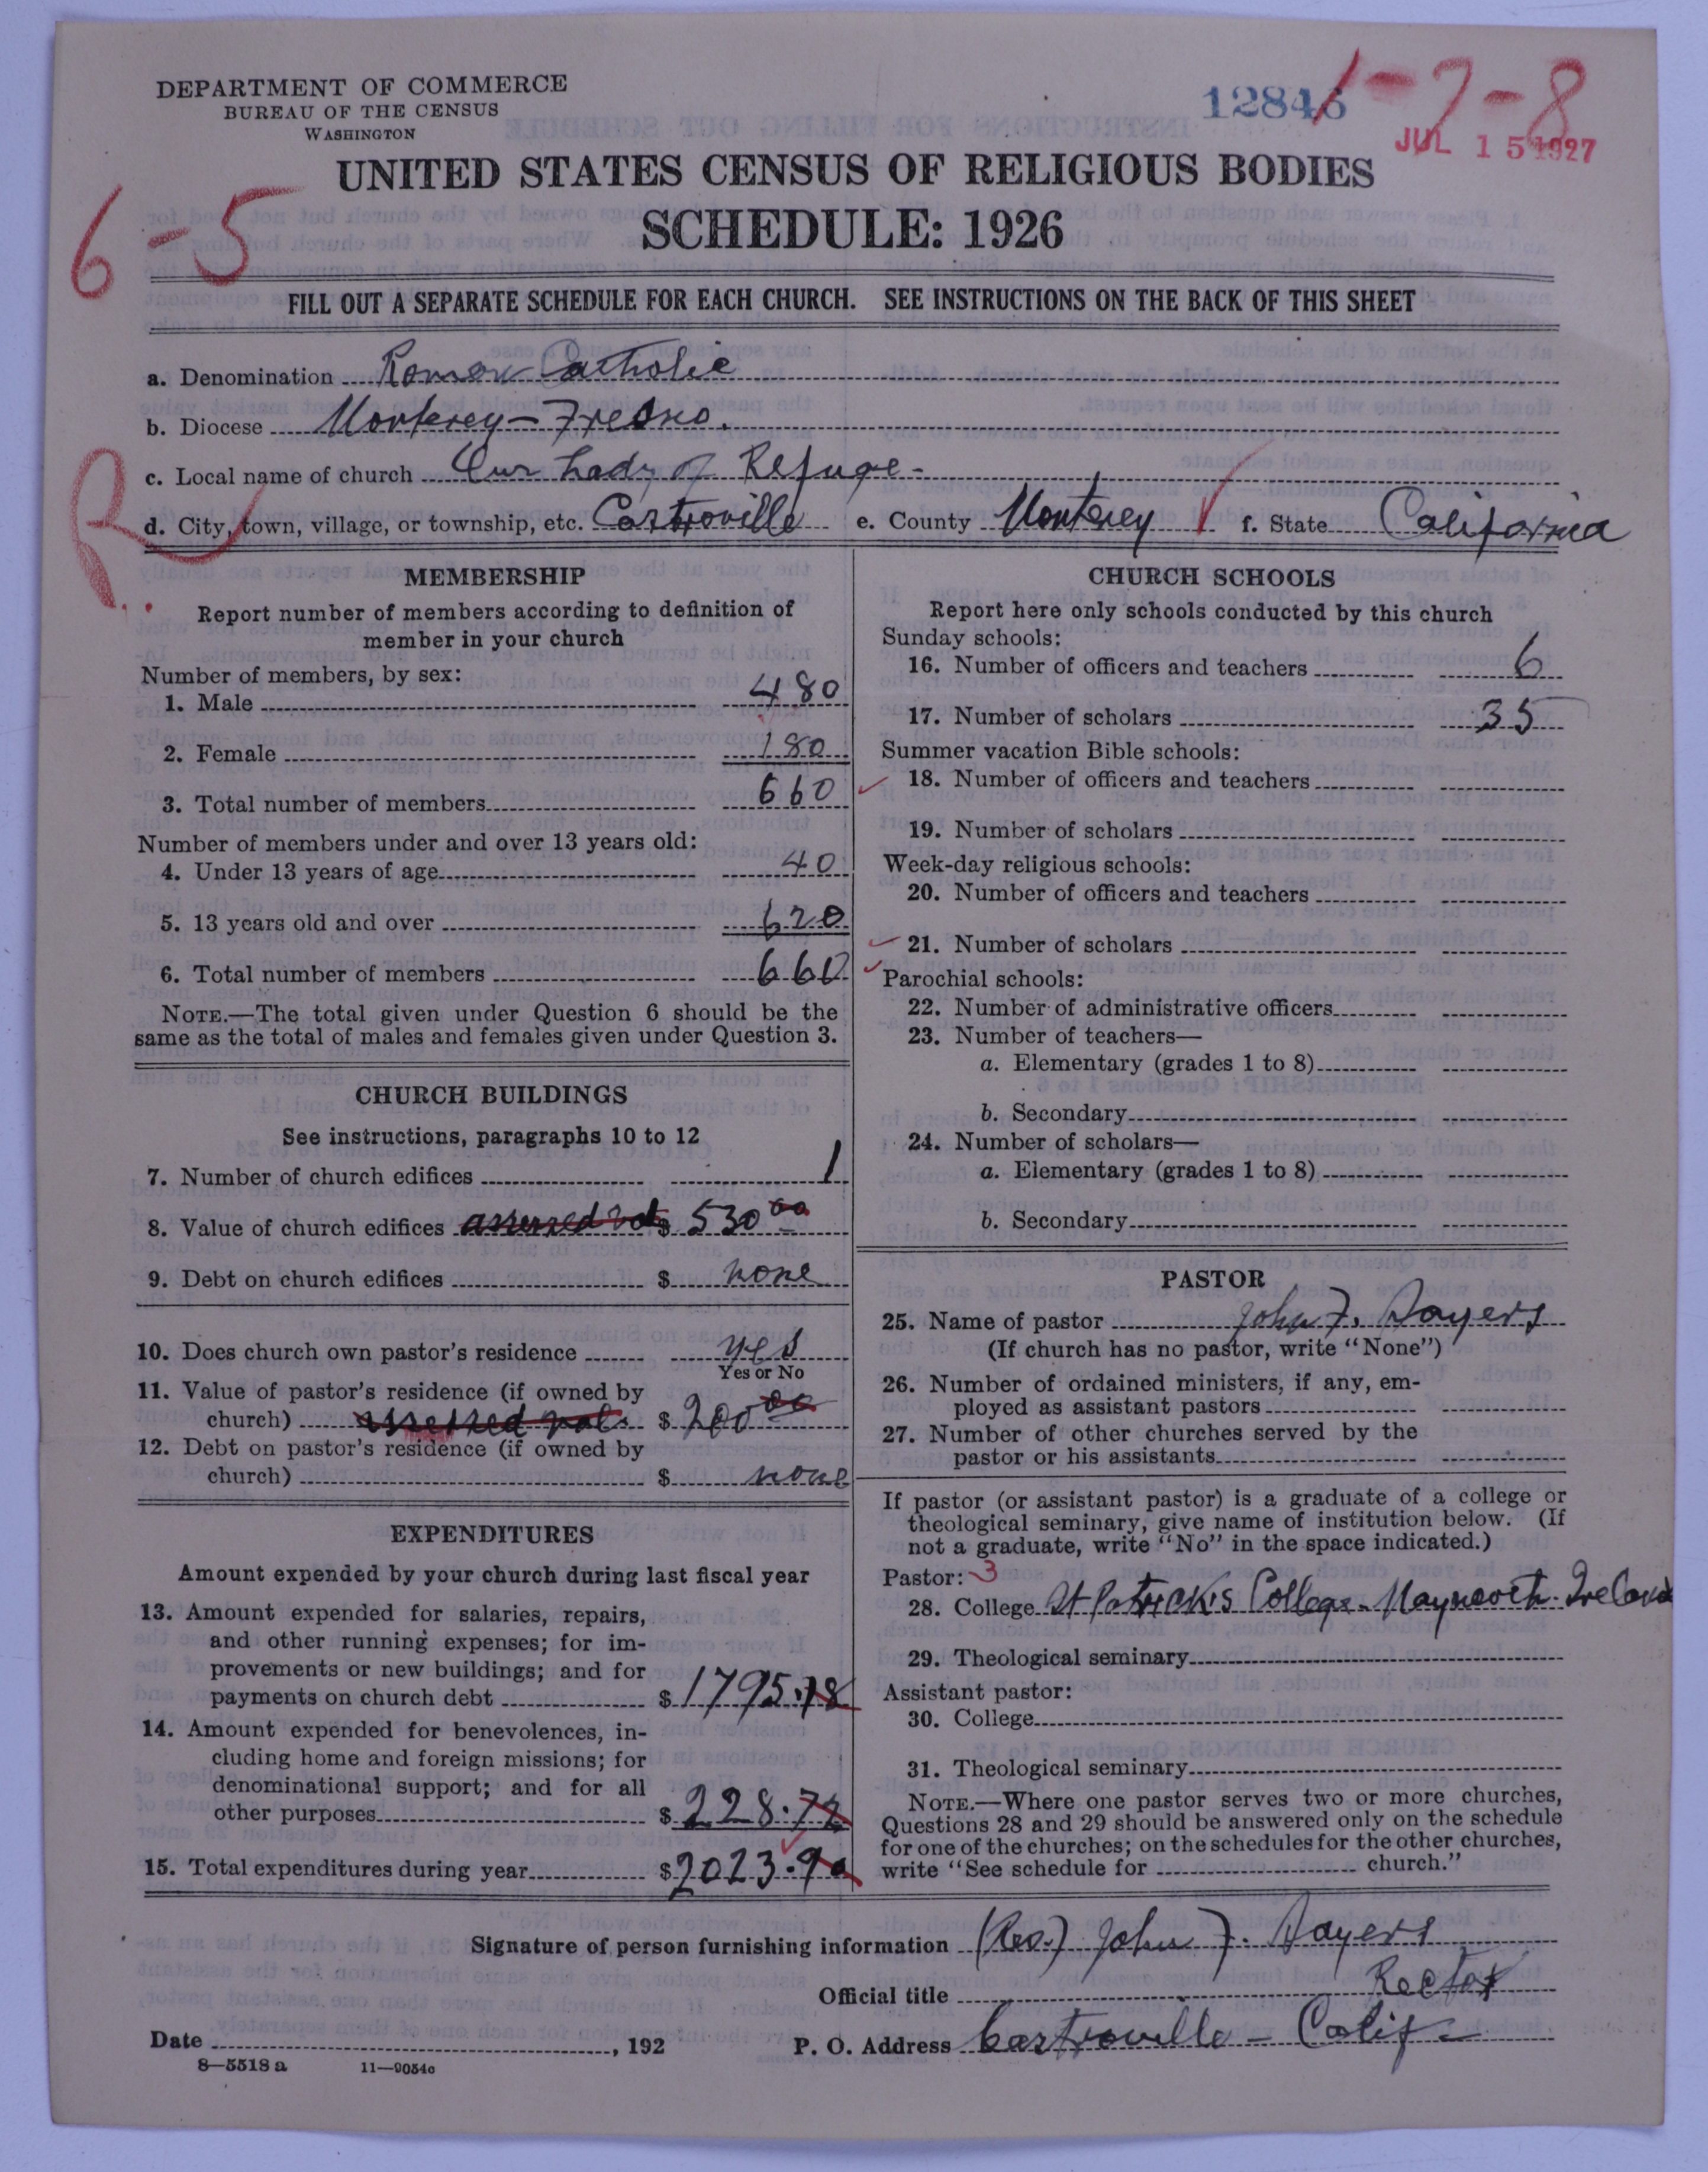 DEPARTMENT OF COMMERCE
BUREAU OF THE CENSUS
WASHINGTON
12846
1-7-8
JUL 15 1927
UNITED STATES CENSUS OF RELIGIOUS BODIES
SCHEDULE: 1926
6-5
FILL OUT A SEPARATE SCHEDULE FOR EACH CHURCH. SEE INSTRUCTIONS ON THE BACK OF THIS SHEET
a. Denomination Roman Catholic
b. Diocese Monterey-Fresno.
c. Local name of church Our Lady of Refuge-
R
d. City, town, village, or township, etc. Castroville e. County Monterey f. State California
MEMBERSHIP
Report number of members according to definition of
member in your church
Number of members, by sex:
1. Male 480
2. Female 180
3. Total number of members 660
Number of members under and over 13 years old:
4. Under 13 years of age 40
5. 13 years old and over 620
6. Total number of members 660
NOTE.—The total given under Question 6 should be the
same as the total of males and females given under Question 3.
CHURCH BUILDINGS
See instructions, paragraphs 10 to 12
7. Number of church edifices 1
8. Value of church edifices assessed val $ 530 00
9. Debt on church edifices $ none
10. Does church own pastor's residence yes
Yes or No
11. Value of pastor's residence (if owned by
church) assessed val. $ 200 00
12. Debt on pastor's residence (if owned by
church) $ none
EXPENDITURES
Amount expended by your church during last fiscal year
13. Amount expended for salaries, repairs,
and other running expenses; for im-
provements or new buildings; and for
payments on church debt $ 1795.18
14. Amount expended for benevolences, in-
cluding home and foreign missions; for
denominational support; and for all
other purposes $ 228.72
15. Total expenditures during year $ 2023.90
CHURCH SCHOOLS
Report here only schools conducted by this church
Sunday schools:
16. Number of officers and teachers 6
17. Number of scholars 35
Summer vacation Bible schools:
18. Number of officers and teachers
19. Number of scholars
Week-day religious schools:
20. Number of officers and teachers
21. Number of scholars
Parochial schools:
22. Number of administrative officers
23. Number of teachers—
a. Elementary (grades 1 to 8)
b. Secondary
24. Number of scholars—
a. Elementary (grades 1 to 8)
b. Secondary
PASTOR
25. Name of pastor John F. Sayers
(If church has no pastor, write "None")
26. Number of ordained ministers, if any, em-
ployed as assistant pastors
27. Number of other churches served by the
pastor or his assistants
If pastor (or assistant pastor) is a graduate of a college or
theological seminary, give name of institution below. (If
not a graduate, write "No" in the space indicated.)
Pastor: 3
28. College St Patrick's College-Maynooth-Ireland
29. Theological seminary
Assistant pastor:
30. College
31. Theological seminary
NOTE.—Where one pastor serves two or more churches,
Questions 28 and 29 should be answered only on the schedule
for one of the churches; on the schedules for the other churches,
write "See schedule for church."
Signature of person furnishing information (Rev.) John F. Sayers
Official title Rector
Date , 192 P. O. Address Castroville-Calif-
8—5518 a 11—9054c